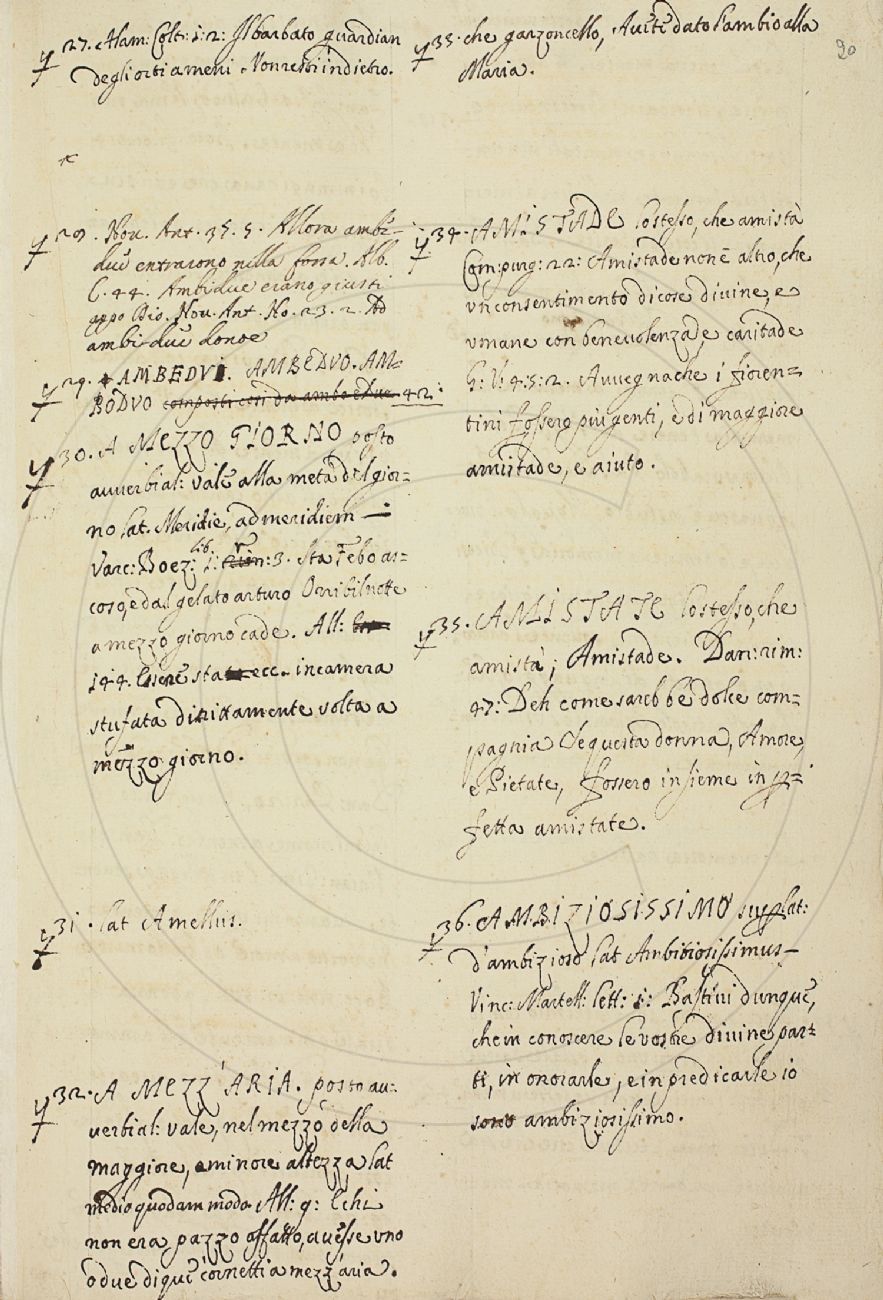 27. Alam: Colt: 1: 2: Il barbato guardian
degli orti ameni Non resti indietro.
29. Nov. Ant. 35. 5. Allora ambi-
due entrarono nella fossa. Alb.
C. 44. Ambidue erano giusti
appo Dio. Nov. Ant. No. 23. 2. Ad
ambidue donoe
29. AMBEDVI. AMBEDVO. AM-
BODVO composti così da ambo e due 42:
30. A MEZZO GIORNO posto
avverbial: vale alla metà del gior=
no lat. Meridie, ad meridiem
Varc: Boez: lib. 1: r. 3. Sta Febo as-
coso, e dal gelato arturo Orribil notte
a mezzo giorno cade. All:
144. Essere stata ecc. in camera
stufata dirittamente volta a
mezzo giorno.
31. lat Amellus.
32. A MEZZ'ARIA. posto av:
verbial: vale, nel mezzo della
maggiore, e minore altezza lat
medio quodam modo All: 9: E chi
non era pazzo affatto, avesse uno
o due di que' cornetti a mezz'aria.
33. che garzoncello, Avete dato l'ambio alla
Maria.
20
34. AMISTADE lo stesso, che amistà
Com: purg: 22: Amistade non è altro, che
un consentimento di cose divine, e
umane con benevolenza, e caritade
G: V: 4: 5: 2. Avvegnache i fioren=
tini fossero più genti, e di maggiore
amistade, e aiuto.
35. AMISTATE lo stesso, che
amistà; Amistade. Dan: rim:
47: Deh come sarebbe dolce com=
pagnia Se questa donna, Amore,
e Pietate, fossero insieme in p=
fetta amistate.
36. AMBIZIOSISSIMO suplat:
d'ambizioso lat Ambitiosissimus
Vinc: Martell: lett: 1: Bastivi dunque,
che in conoscere le vostre divine par=
ti, in onorarle, e in predicarle io
sono ambiziosissimo.